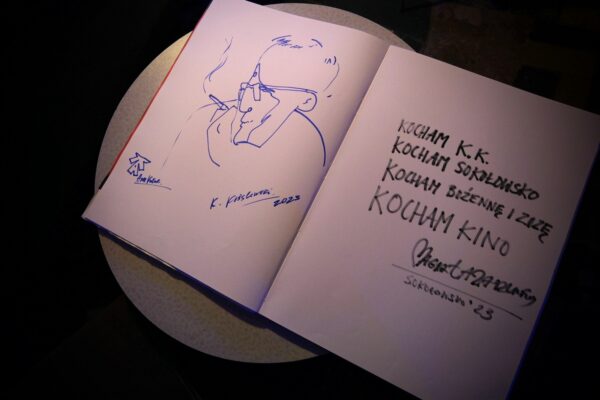 K. Kieślowski
2023
KOCHAM K.K.
KOCHAM SOKOŁOWSKO
KOCHAM BOŻENNĘ I ZUZĘ
KOCHAM KINO
SOKOŁOWSKO '23